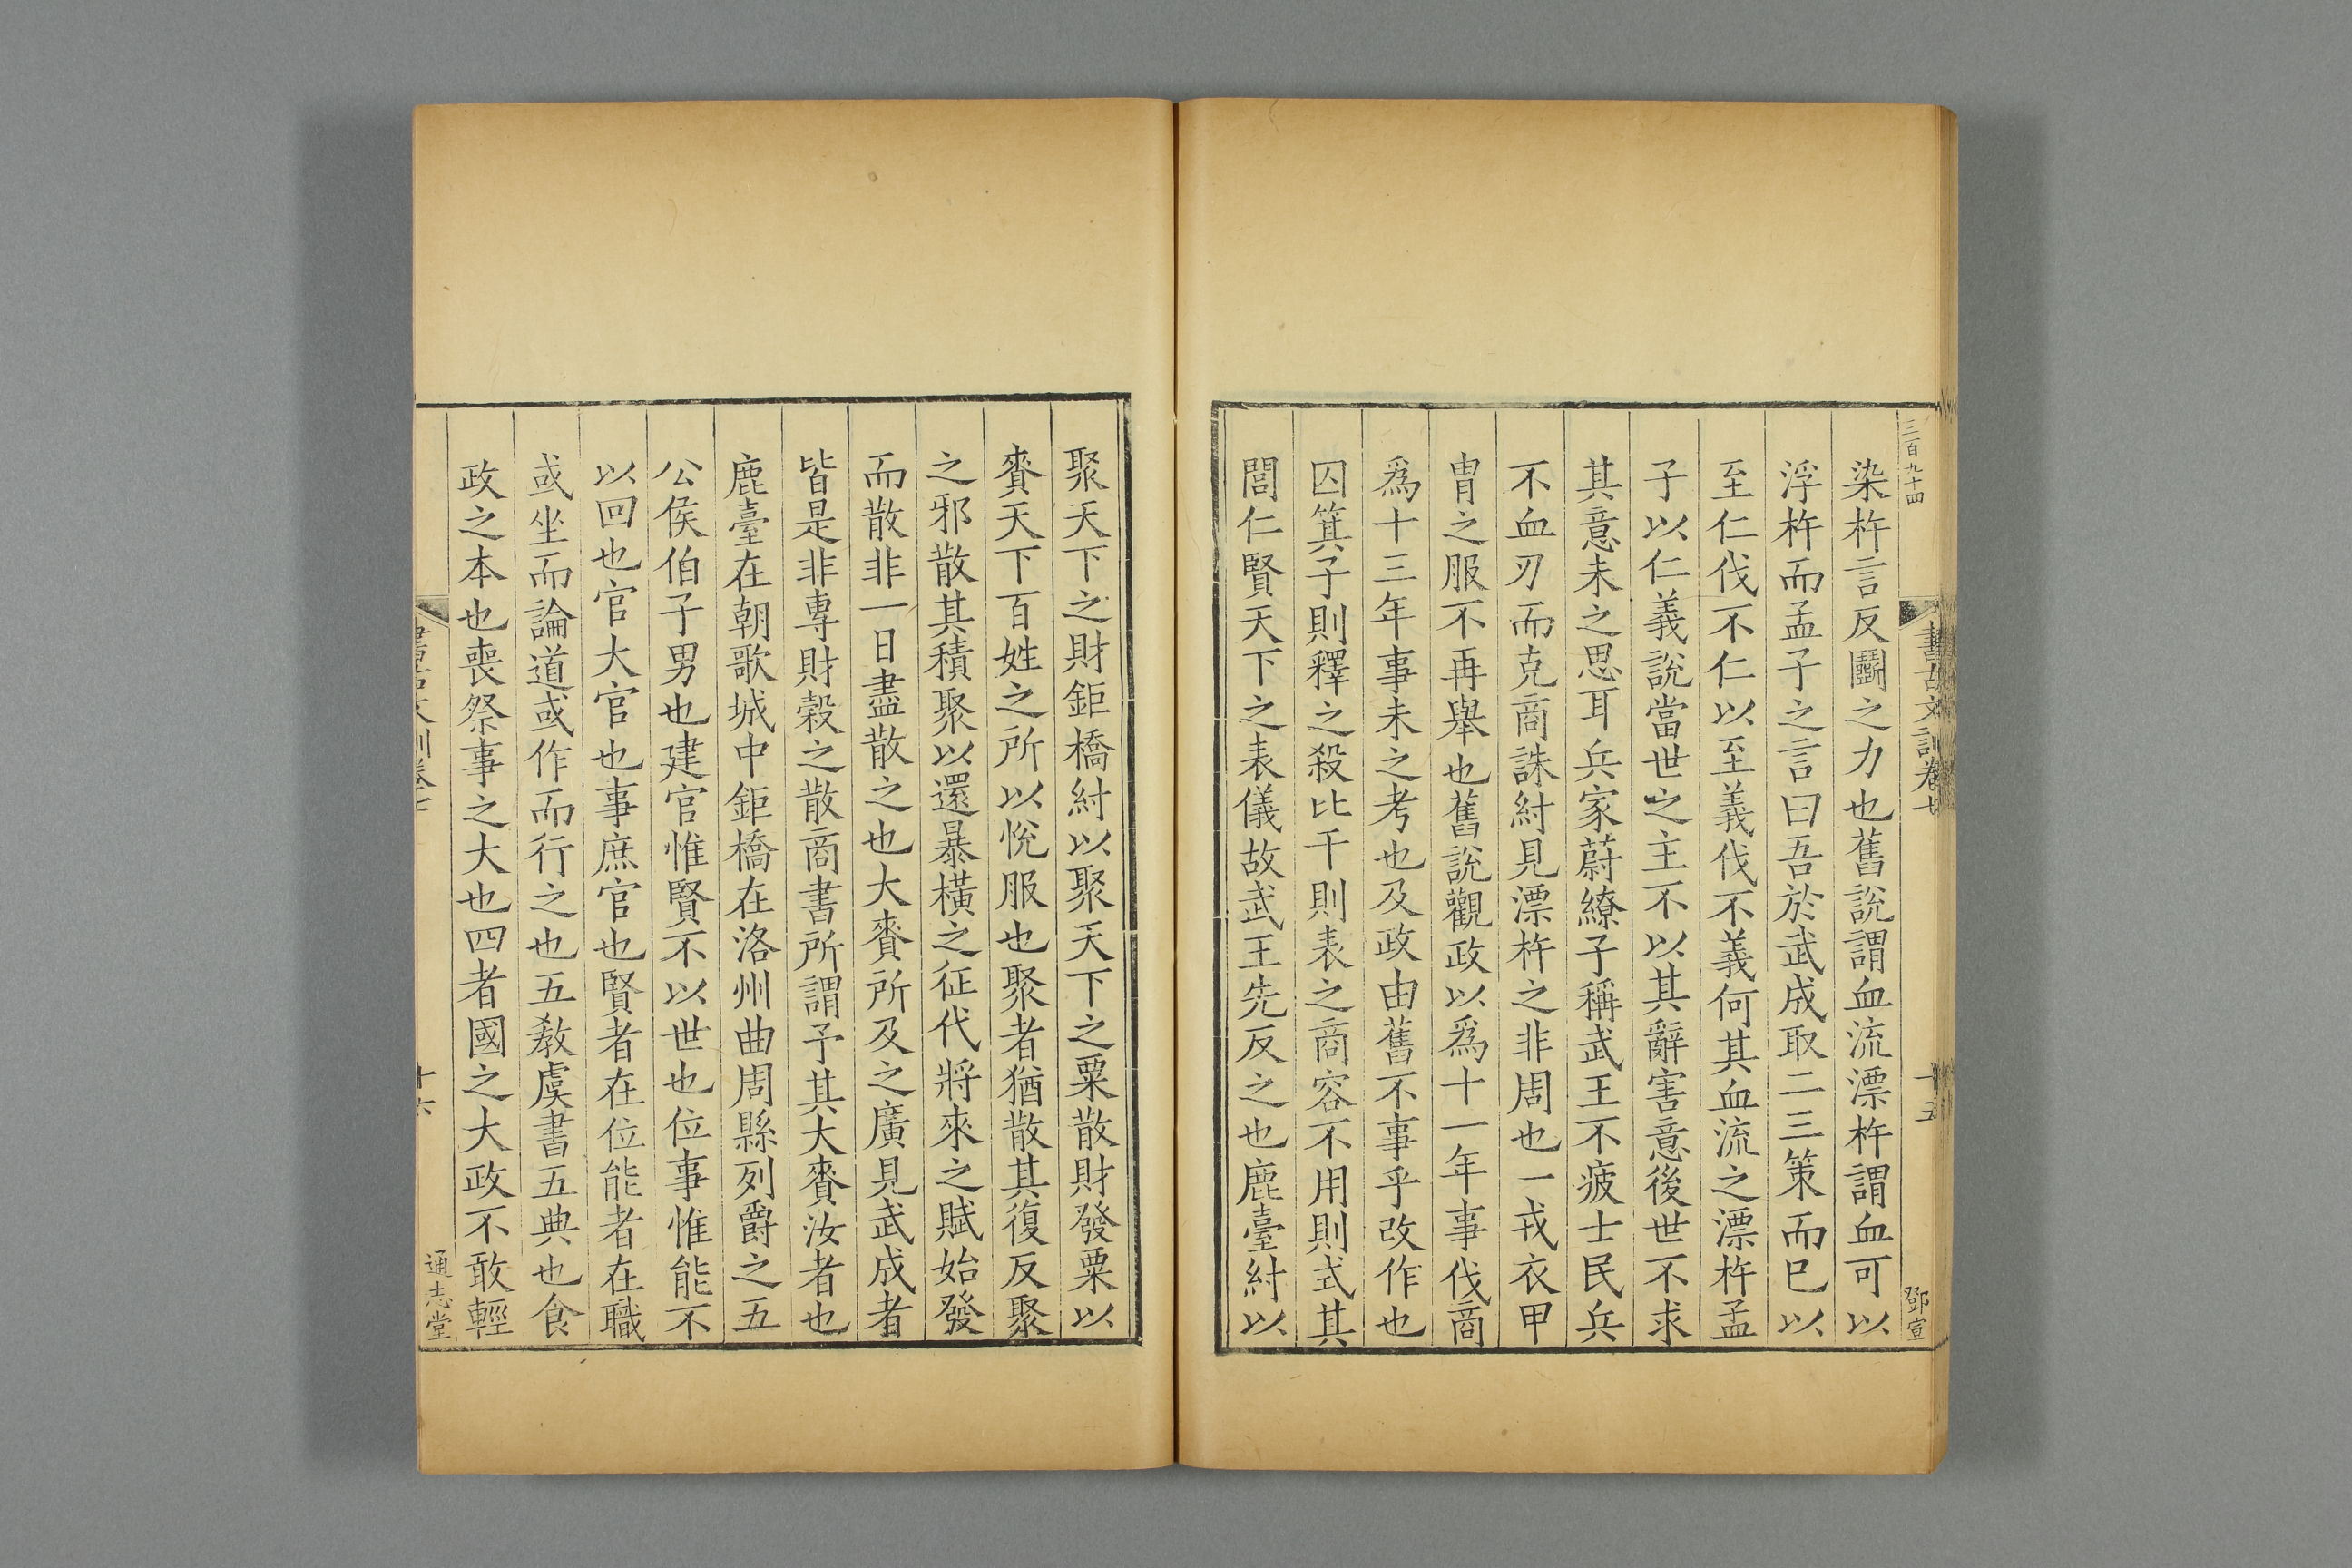 三百九十四
書古文訓卷七
十五
鄧宣
染杵言反鬭之力也舊說謂血流漂杵謂血可以
浮杵而孟子之言曰吾於武成取二三策而已以
至仁伐不仁以至義伐不義何其血流之漂杵孟
子以仁義說當世之主不以其辭害意後世不求
其意未之思耳兵家蔚繚子稱武王不疲士民兵
不血刃而克商誅紂見漂杵之非周也一戎衣甲
胄之服不再舉也舊說觀政以爲十一年事伐商
爲十三年事未之考也及政由舊不事乎改作也
囚箕子則釋之殺比干則表之商容不用則式其
閭仁賢天下之表儀故武王先反之也鹿臺紂以
聚天下之財鉅橋紂以聚天下之粟散財發粟以
賚天下百姓之所以悅服也聚者猶散其復反聚
之邪散其積聚以還暴橫之征代將來之賦始發
而散非一日盡散之也大賚所及之廣見武成者
皆是非專財穀之散商書所謂予其大賚汝者也
鹿臺在朝歌城中鉅橋在洛州曲周縣列爵之五
公侯伯子男也建官惟賢不以世也位事惟能不
以回也官大官也事庶官也賢者在位能者在職
或坐而論道或作而行之也五教虞書五典也食
政之本也喪祭事之大也四者國之大政不敢輕
書古文訓卷七
十六
通志堂